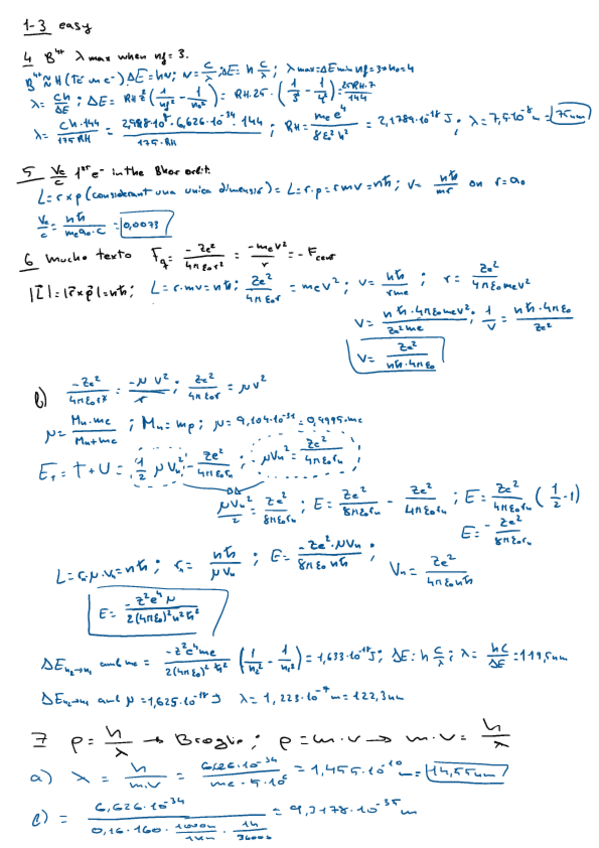 1-3 easy
4 B⁴⁺ λ max when nf = 3.
B⁴⁺ ≈ H (Té 1 e⁻) ΔE = hν; ν = c/λ; ΔE = h c/λ; λ max = ΔE min nf = 3 → n₀ = 4
λ = ch/ΔE; ΔE = RH z² (1/nf² - 1/n₀²) = RH·25·(1/3² - 1/4²) = 25RH·7/144
λ = ch·144/175RH = 2,988·10⁸·6,626·10⁻³⁴·144/175·RH; RH = me e⁴/8ε₀²h² = 2,1789·10⁻¹⁸ J; λ = 7,5·10⁻⁸ m = 75nm
5 Ve/c 1er e⁻ in the Bhor orbit.
L = r x p (considerant una unica dimensió) = L = r·p = rmv = nħ; v = nħ/mr on r = a₀
Ve/c = nħ/me a₀·c = 0,0073
6 mucho texto Fq = -Ze²/4πε₀r² = -me v²/r = -Fcent
|L⃗| = |r⃗ x p⃗| = nħ; L = r·mv = nħ; Ze²/4πε₀r = me v²; v = nħ/r me; r = Ze²/4πε₀ me v²
v = nħ·4πε₀ me v²/Ze² me; 1/v = nħ·4πε₀/Ze²
v = Ze²/nħ·4πε₀
b) -Ze²/4πε₀r² = -μv²/r; Ze²/4πε₀r = μv²
μ = Mn·me/Mn+me; Mn = mp; μ = 9,104·10⁻³¹ = 0,9995·me
E_T = T + U = 1/2 μVn² - Ze²/4πε₀rn; μVn² = Ze²/4πε₀rn
μVn²/2 = Ze²/8πε₀rn; E = Ze²/8πε₀rn - Ze²/4πε₀rn; E = Ze²/4πε₀rn (1/2 - 1)
E = -Ze²/8πε₀rn
L = r·μ·vn = nħ; rn = nħ/μVn; E = -Ze²·μVn/8πε₀nħ; Vn = Ze²/4πε₀nħ
E = -Z²e⁴μ/2(4πε₀)²n²ħ²
ΔE n₂→n₁ amb me = -Z²e⁴me/2(4πε₀)²ħ² (1/n₂² - 1/n₁²) = 1,633·10⁻¹⁸ J; ΔE = h c/λ; λ = hc/ΔE = 119,5nm
ΔE n₂→n₁ amb μ = 1,625·10⁻¹⁸ J λ = 1,223·10⁻⁷ m = 122,3nm
7 p = h/λ → Broglie; p = m·v → m·v = h/λ
a) λ = h/m·v = 6,626·10⁻³⁴/me·5·10⁶ = 1,455·10⁻¹⁰ m = 14,55nm
c) = 6,626·10⁻³⁴/0,16·160·1000m/1km·1h/3600s = 9,3178·10⁻³⁵ m